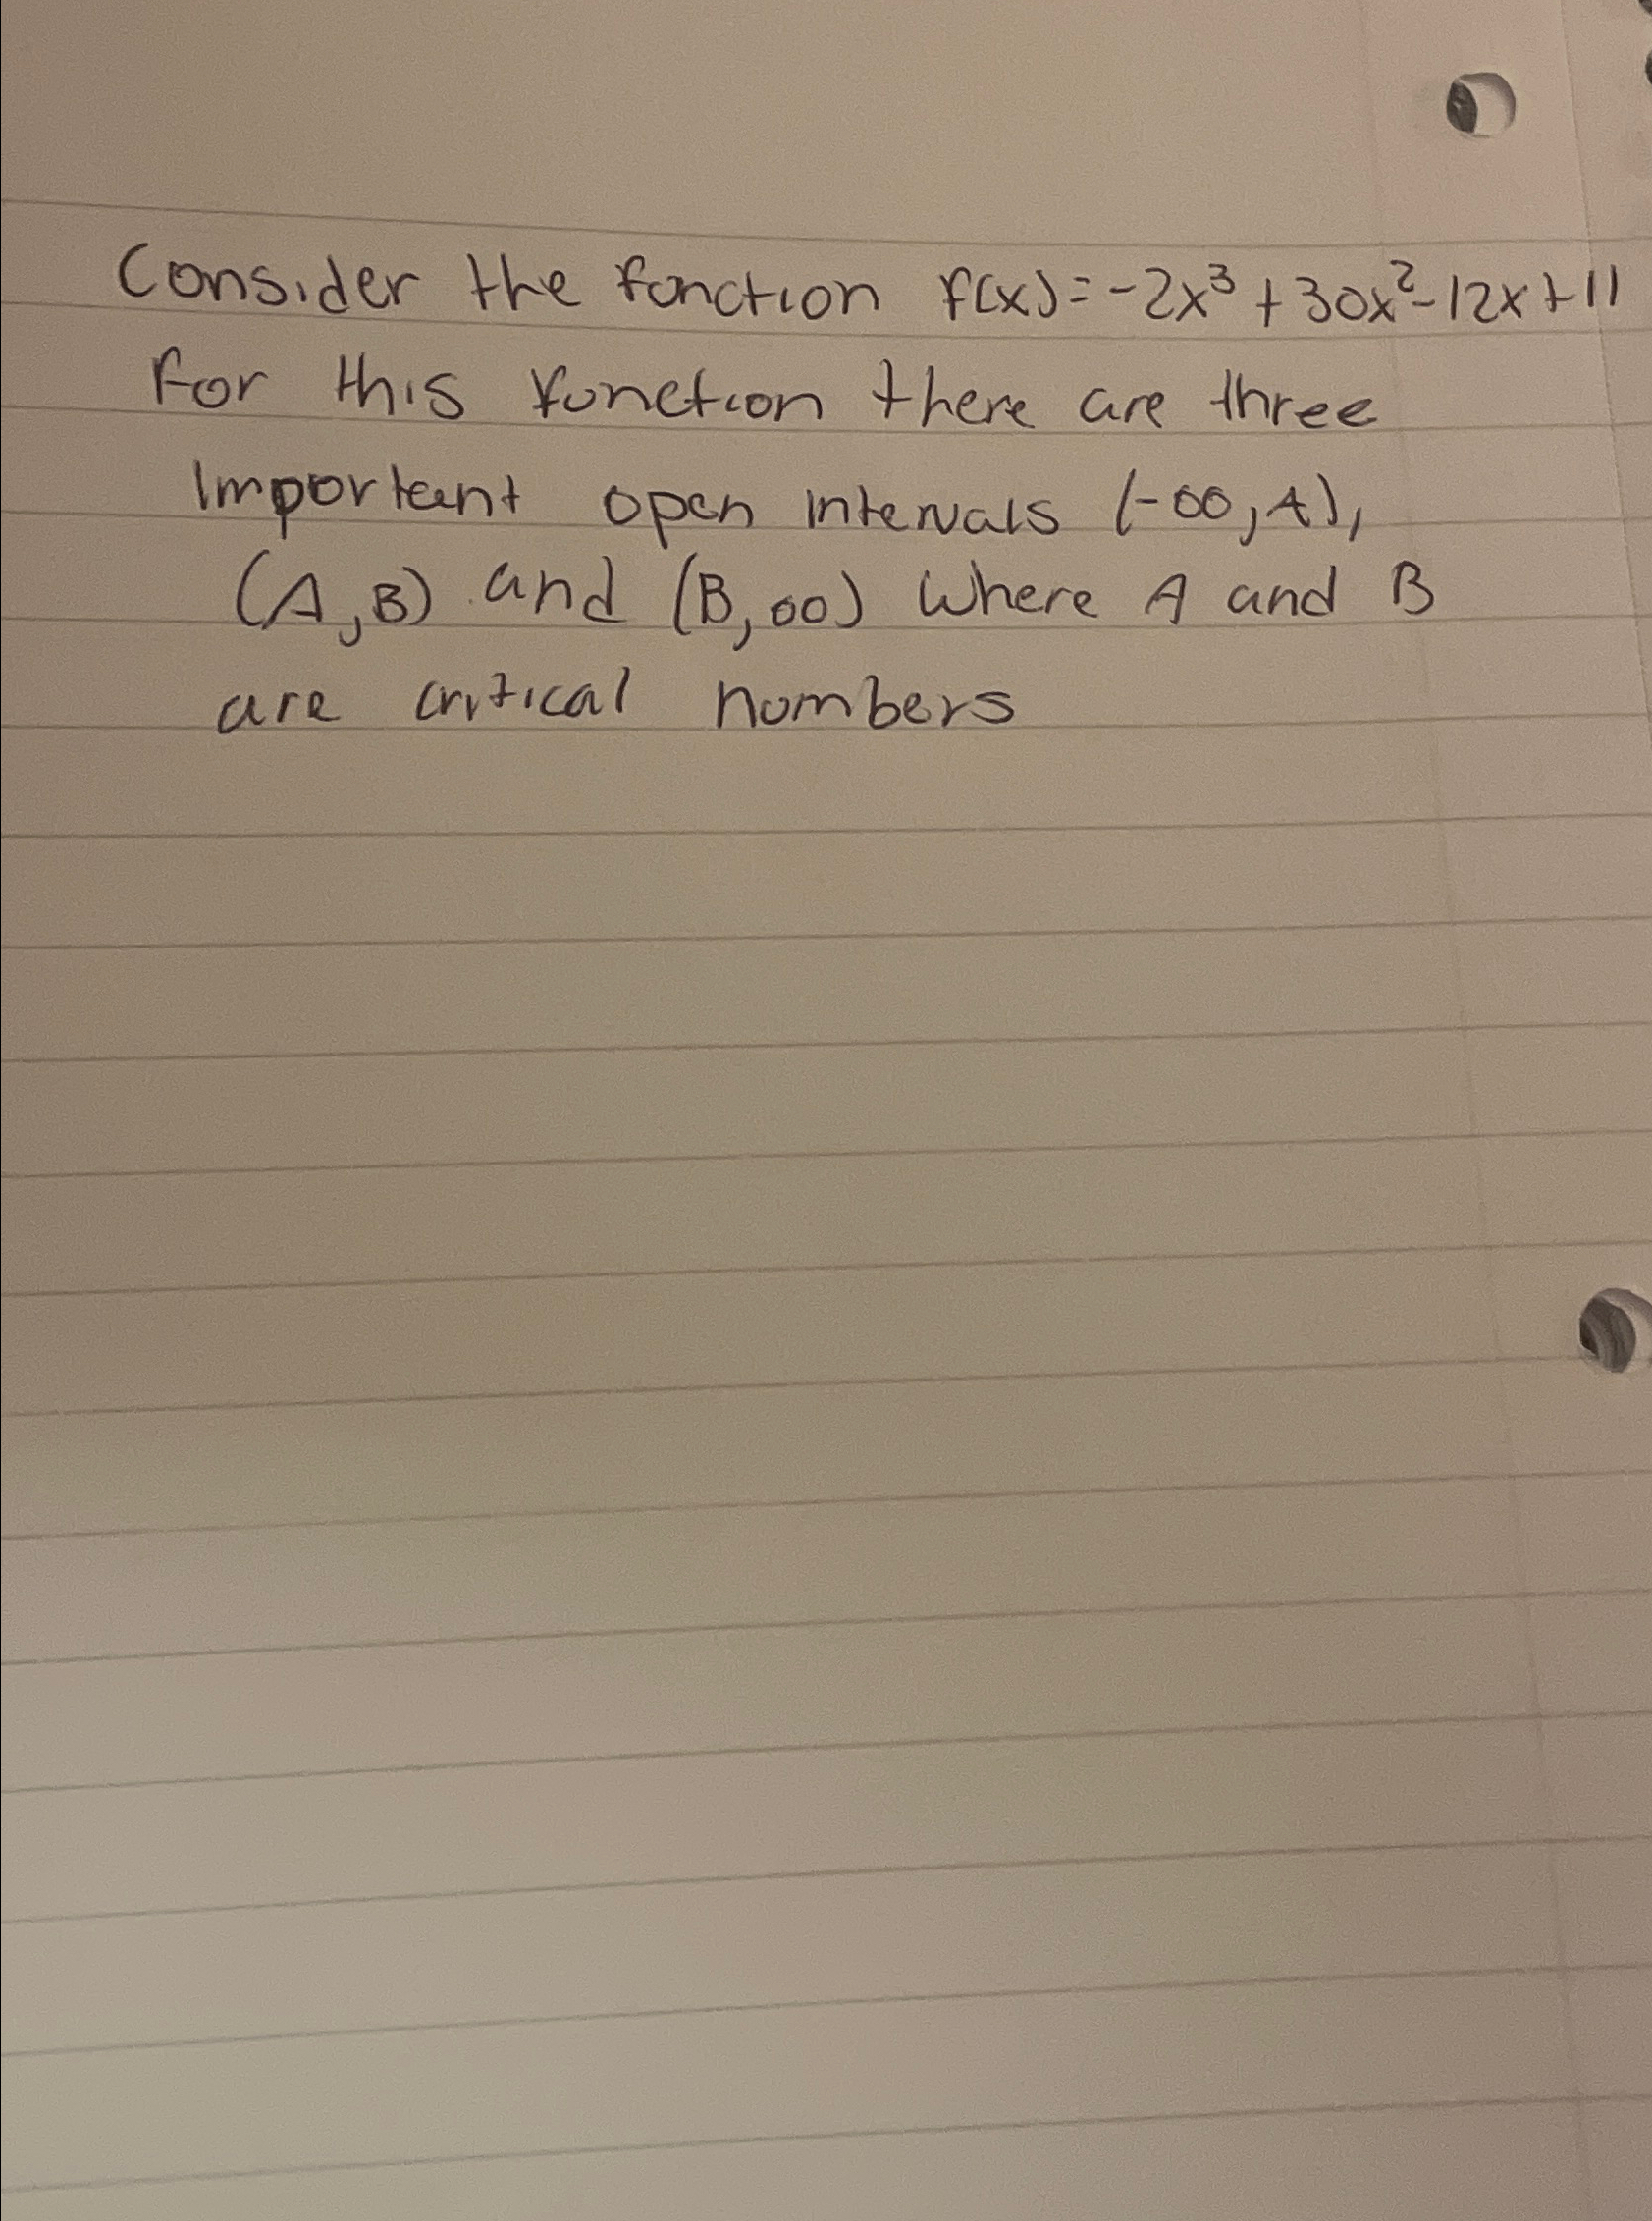 Consider the function f(x)=-2x³+30x²-12x+11
For this function there are three
Important open intervals (-∞,A),
(A,B) and (B,∞) where A and B
are critical numbers